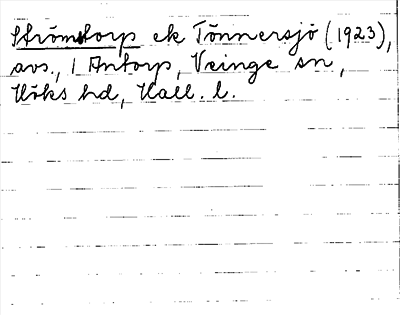 Strömstorp ek Tönnersjö (1923),
avs., 1 Antorp, Veinge sn,
Höks hd, Hall. l.